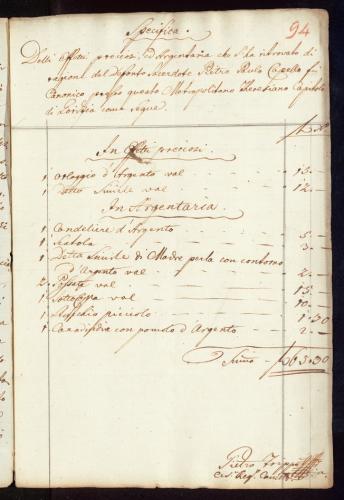 94
Specifica
Delli Effetti preciosi, ed Argentaria che s'ha ritrovato di
ragione del Defonto Sacerdote Pietro Paulo Capello fu
Canonico presso questo Metropolitano Teresiano Capitolo
di Gorizia come segue.
In Effetti preciosi.
1 Orloggio d'Argento val 15. —
1 Detto Simile val 12. —
In Argentaria.
1 Candeliere d'Argento 5. —
1 Scatola 3. —
1 Detta Simile di Madre perla con contorno
d'Argento val 2. —
2 Possate val 15. —
1 Sottocoppa val 10. —
1 Specchio picciolo 1. 30
1 Cannadindia con pomolo d'Argento 2. —
Summa f 65. 30
Pietro